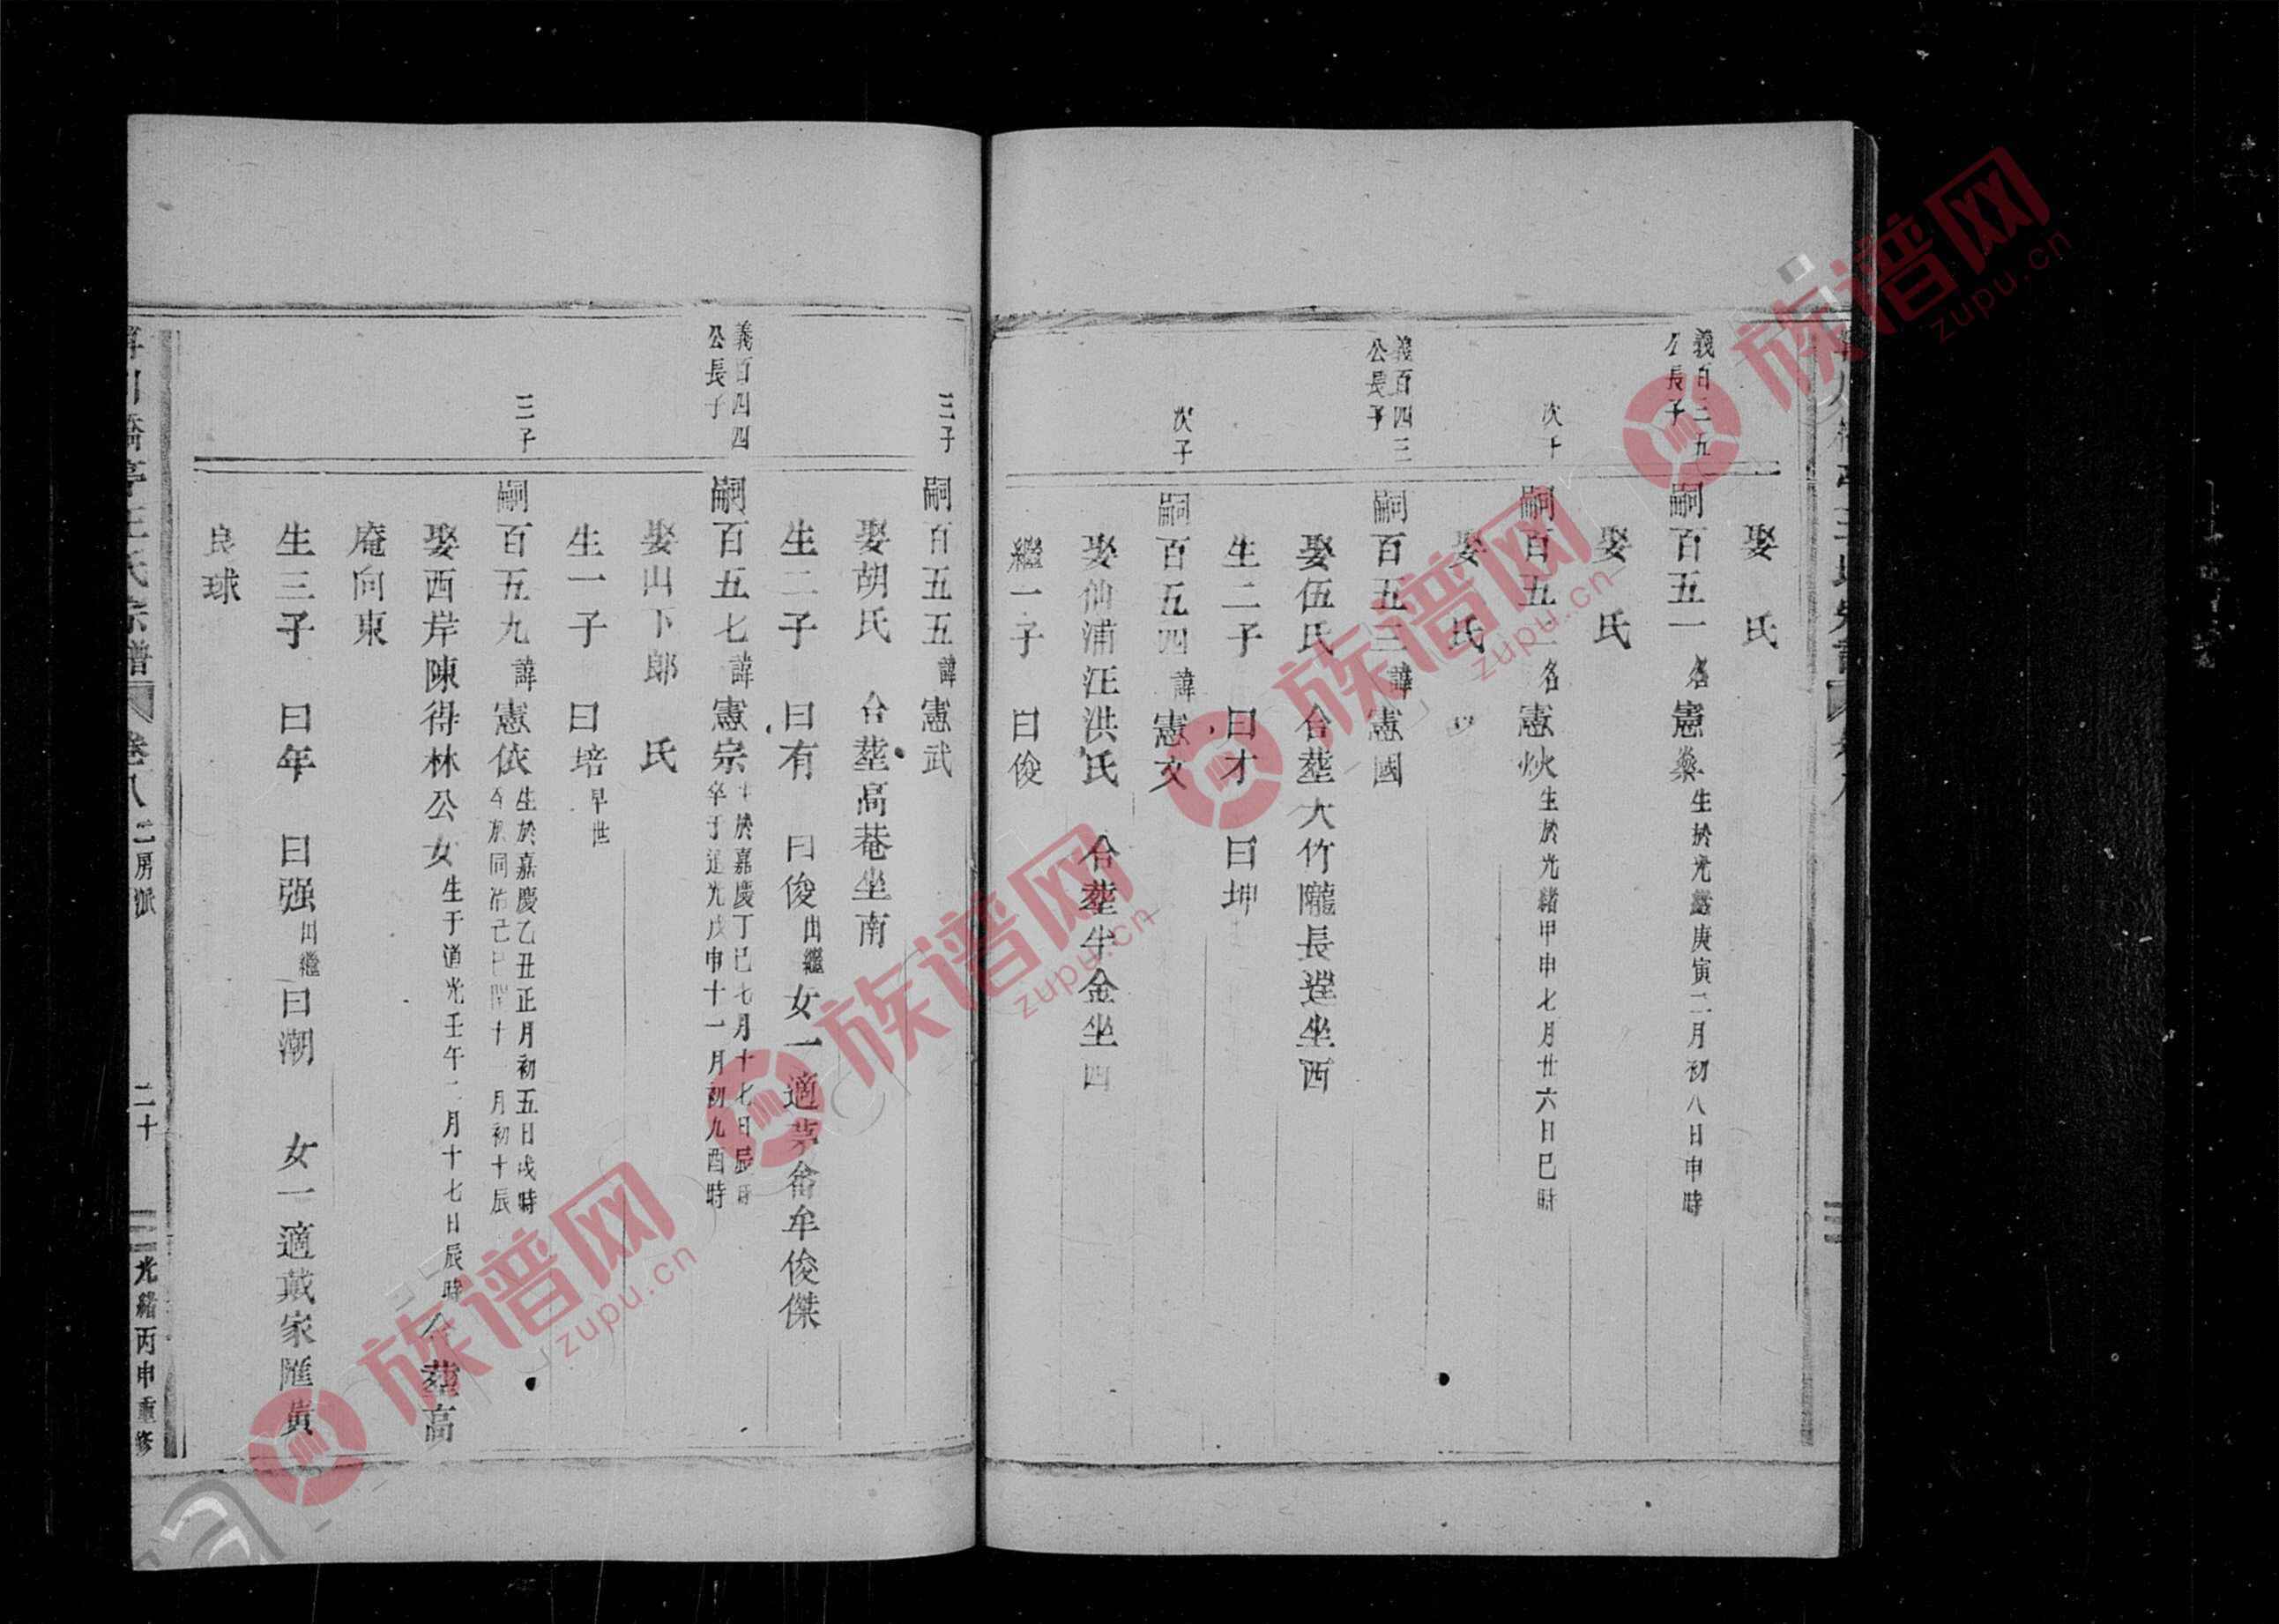 娶 氏
義百三五
公長子
嗣百五一 名憲 生於光緒庚寅二月初八日申時
娶 氏
次子
嗣百五二 名憲炏 生於光緒甲申七月廿六日巳時
娶 氏
義百四三
公長子
嗣百五三 諱憲國
娶伍氏 合塟大竹隴長塋坐西
生二子 曰才 曰坤
次子
嗣百五四 諱憲文
娶仙浦汪洪氏 合塟牛金坐
繼一子 曰俊
三子
嗣百五五 諱憲武
娶胡氏 合塟高巷坐南
生二子 曰有 曰俊 出繼 女一適 畨牟俊傑
義百四四
公長子
嗣百五七 諱憲宗 於嘉慶丁巳七月十七日辰時
卒于道光戊申十一月初九酉時
娶山下郎 氏
生一子 曰培 早世
三子
嗣百五九 諱憲依 生於嘉慶乙丑正月初五日戌時
卒於同治己巳 十一月初十辰
娶西岸陳得林公女 生于道光壬午二月十七日辰時 合塟高
庵向東
生三子 曰年 曰强 出繼 曰潮 女一適戴家匯黄
良球
橋亭王氏宗譜 卷八 二房派 二十 光緒丙申重修
族谱网
zupu.cn
族谱网
zupu.cn
族谱网
zupu.cn
族谱网
zupu.cn